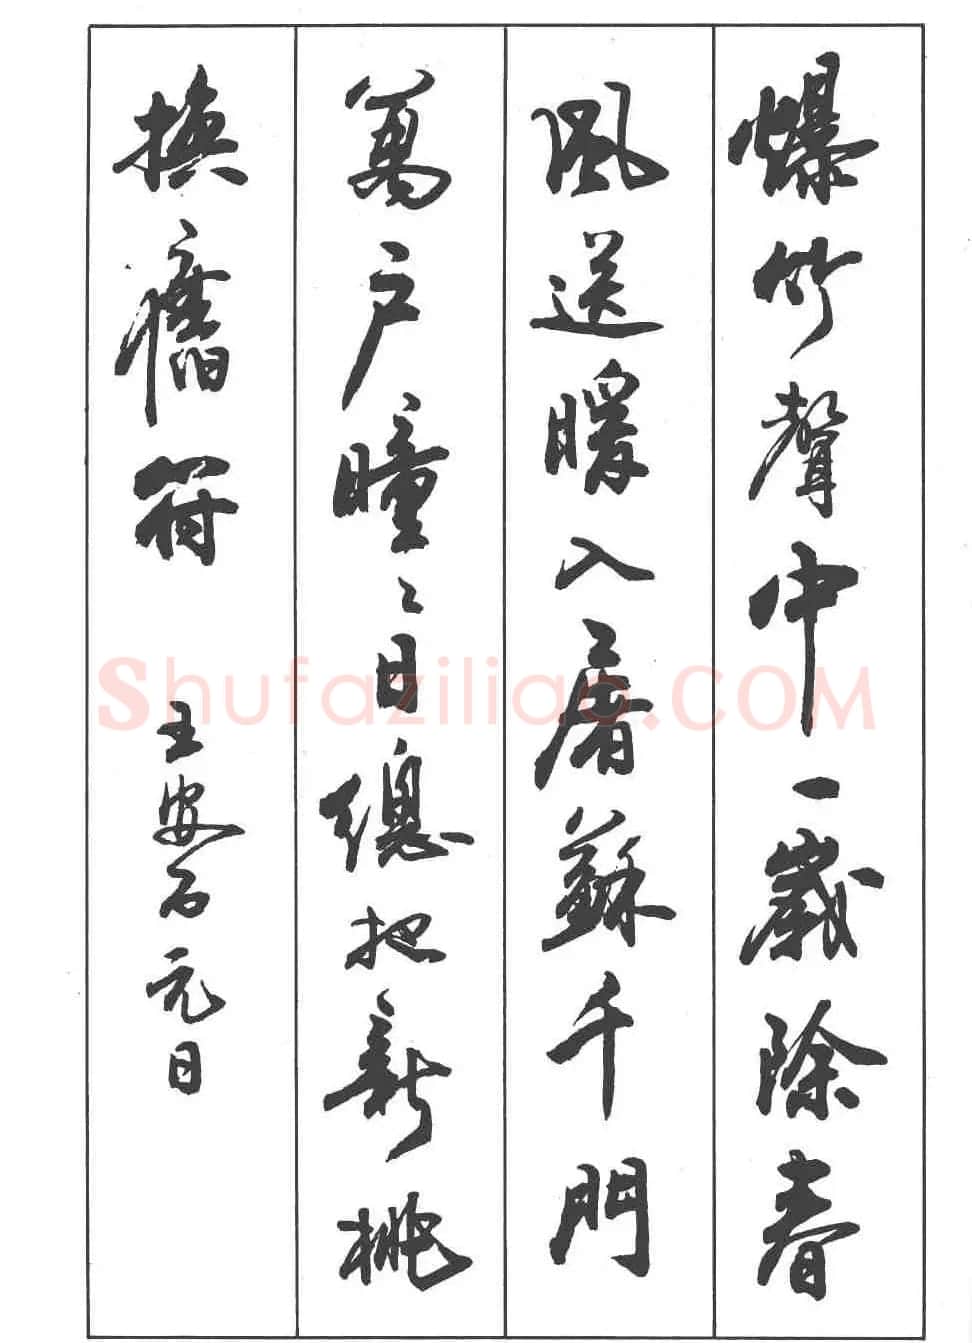 爆竹聲中一歲除春
風送暖入屠蘇千門
萬户曈〻日總把新桃
換舊符 王安石元日
Shufaziliao.COM